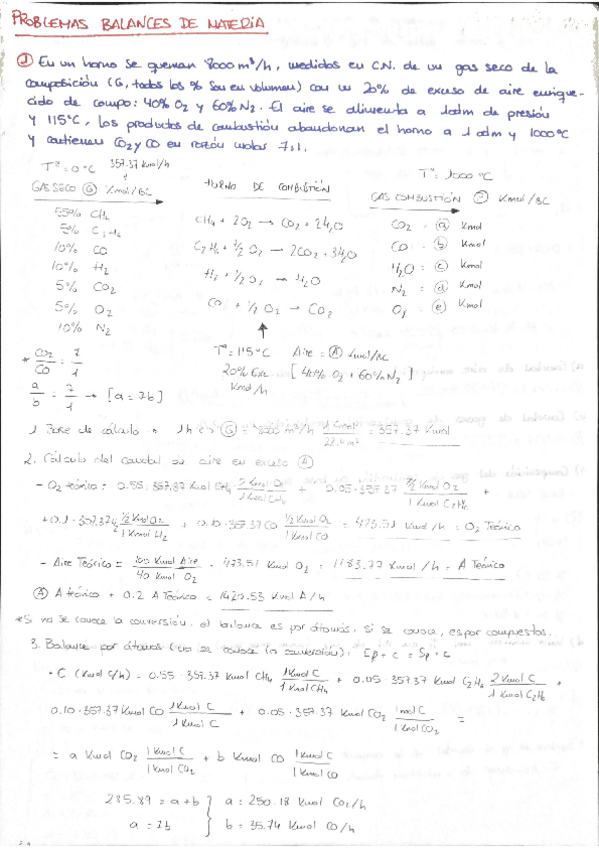 PROBLEMAS BALANCES DE MATERIA
① En un horno se queman 8000 m³/h, medidos en C.N. de un gas seco de la
composición (G, todos los % son en volumen) con un 20% de exceso de aire enrique-
cido de compo: 40% O₂ y 60% N₂. El aire se alimenta a 1 atm de presión
y 115°C, los productos de combustión abandonan el horno a 1 atm y 1000°C
y contienen CO₂ y CO en razón molar 7:1.
Tª = 0°C 357.37 Kmol/h
Tª: 1000 °C
GAS SECO Ⓖ Kmol/BC
HORNO DE COMBUSTIÓN
GAS COMBUSTIÓN Kmol/BC
55% CH₄
5% C₂H₆
10% CO
10% H₂
5% CO₂
5% O₂
10% N₂
CH₄ + 2O₂ → CO₂ + 2H₂O
C₂H₆ + 7/2 O₂ → 2CO₂ + 3H₂O
H₂ + 1/2 O₂ → H₂O
CO + 1/2 O₂ → CO₂
CO₂ = ⓐ Kmol
CO = ⓑ Kmol
H₂O = ⓒ Kmol
N₂ = ⓓ Kmol
O₂ = ⓔ Kmol
Tª = 115°C Aire = Ⓐ Kmol/BC
20% Exc [40% O₂ + 60% N₂]
Kmol/h
* CO₂/CO = 7/1
a/b = 7/1 → [a = 7b]
1. Base de cálculo = 1h => Ⓖ = 8000 m³/h · 1 Kmol/22.4 m³ = 357.37 Kmol
2. Cálculo del caudal de aire en exceso Ⓐ
- O₂ teórico: 0.55 · 357.37 Kmol CH₄ 2 Kmol O₂/1 Kmol CH₄ + 0.05 · 357.37 7/2 Kmol O₂/1 Kmol C₂H₆ +
+ 0.1 · 357.37 1/2 Kmol O₂/1 Kmol H₂ + 0.10 · 357.37 CO 1/2 Kmol O₂/1 Kmol CO = 473.51 Kmol/h = O₂ Teórico
- Aire Teórico = 100 Kmol Aire/40 Kmol O₂ · 473.51 Kmol O₂ = 1183.77 Kmol/h = A Teórico
Ⓐ A teórico + 0.2 A Teórico = 1420.53 Kmol A/h
* Si no se conoce la conversión, el balance es por átomos, si se conoce, es por compuestos.
3. Balance por átomos (no se conoce la conversión): Ep + c = Sp + c
· C (Kmol C/h) = 0.55 · 357.37 Kmol CH₄ 1 Kmol C/1 Kmol CH₄ + 0.05 · 357.37 Kmol C₂H₆ 2 Kmol C/1 Kmol C₂H₆ +
0.10 · 357.37 Kmol CO 1 Kmol C/1 Kmol C + 0.05 · 357.37 Kmol CO₂ 1 mol C/1 Kmol CO₂ =
= a Kmol CO₂ 1 Kmol C/1 Kmol CO₂ + b Kmol CO 1 Kmol C/1 Kmol CO
285.89 = a + b } a = 250.18 Kmol CO₂/h
a = 7b } b = 35.74 Kmol CO/h